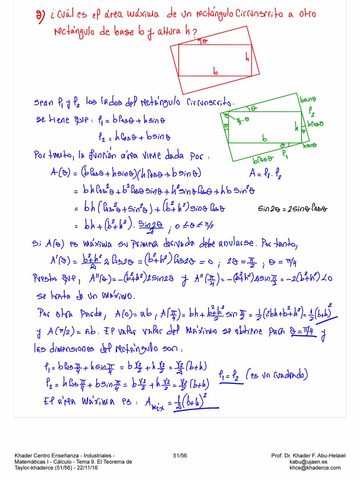 a) ¿Cuál es el área máxima de un rectángulo circunscrito a otro
rectángulo de base b y altura h?
θ
h
b
Sean l₁ y l₂ los lados del rectángulo circunscrito.
Se tiene que: l₁ = b cosθ + h senθ
l₂ = h cosθ + b senθ
b senθ
l₂
h
h cosθ
b
h senθ
b cosθ
l₁
Por tanto, la función área viene dada por:
A(θ) = (b cosθ + h senθ)(h cosθ + b senθ) A = l₁·l₂
= bh cos²θ + b² cosθ senθ + h² senθ cosθ + hb sen²θ
= bh(cos²θ + sen²θ) + (b²+h²) senθ cosθ sen2θ = 2senθ cosθ
= bh + (b²+h²)· sen2θ/2 ; 0 ≤ θ ≤ π/2
Si A(θ) es máxima su primera derivada debe anularse. Por tanto,
A'(θ) = (b²+h²)/2 · 2 cos2θ = (b²+h²) cos2θ = 0 ; 2θ = π/2 ; θ = π/4
Puesto que, A''(θ) = -(b²+h²) 2 sen2θ y A''(π/4) = -(b²+h²) 2 sen π/2 = -2(b²+h²) < 0
se trata de un máximo.
Por otra parte, A(0) = ab, A(π/4) = bh + (b²+h²)/2 sen π/2 = 1/2 (2bh + b² + h²) = 1/2 (b+h)²
y A(π/2) = ab. El valor del máximo se obtiene para θ = π/4 y
las dimensiones del rectángulo son:
l₁ = b cos π/4 + h sen π/4 = b √2/2 + h √2/2 = √2/2 (b+h)
l₂ = h cos π/4 + b sen π/4 = b √2/2 + h √2/2 = √2/2 (b+h) l₁ = l₂ (es un cuadrado)
El área máxima es: A máx = 1/2 (b+h)²
Khader Centro Enseñanza - Industriales -
Matemáticas I - Cálculo - Tema 9. El Teorema de
Taylor-khaderce (51/56) - 22/11/16
51/56
Prof. Dr. Khader F. Abu-Helaiel
kabu@ujaen.es
khce@khaderce.com